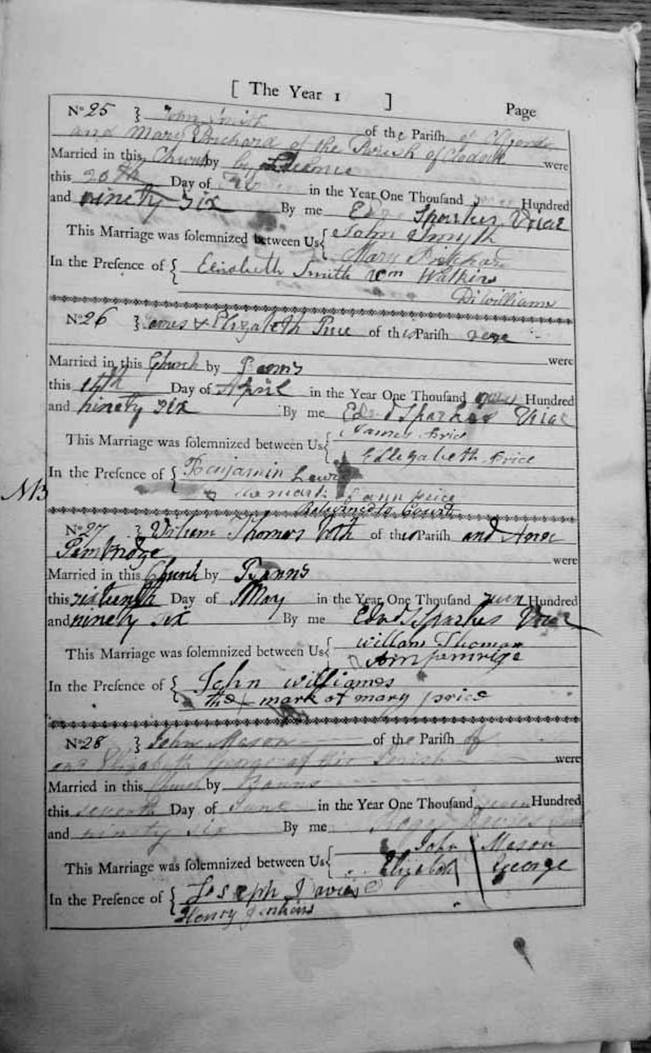 [ The Year 1 ] Page
No 25 } John Smith of the Parish of Clifford
and Mary Prichard of the Parish of Clodock were
Married in this Church by by Licence
this 20th Day of in the Year One Thousand Hundred
and ninety six By me Edw Sparkes Vicar
This Marriage was solemnized between Us { John Smyth
Mary Prichard
In the Presence of { Elisabeth Smith Wm Watkins
Dl Williams
No 26 } James & Elizabeth Price of this Parish were
were
Married in this Church by Banns
this 14th Day of April in the Year One Thousand Hundred
and ninety six By me Edwd Sparkes Vicar
This Marriage was solemnized between Us { James Price
Ellizabeth Price
NB In the Presence of { Benjamin Lewis
mark of ann price
Returned to Court
No 27 } William Thomas both of this Parish and Anne
Pembridge were
Married in this Church by Banns
this sixteenth Day of May in the Year One Thousand seven Hundred
and ninety six By me Edwd Sparkes Vicar
This Marriage was solemnized between Us { william Thomas
Ann pemrige
In the Presence of { John williames
the mark of mary price
No 28 } John Mason of the Parish of
and Elizabeth George of this Parish were
Married in this Church by Banns
this seventh Day of June in the Year One Thousand seven Hundred
and ninety six By me Roger Davies
This Marriage was solemnized between Us { John Mason
Elizabeth George
In the Presence of { Joseph Davies
Henry Jenkins